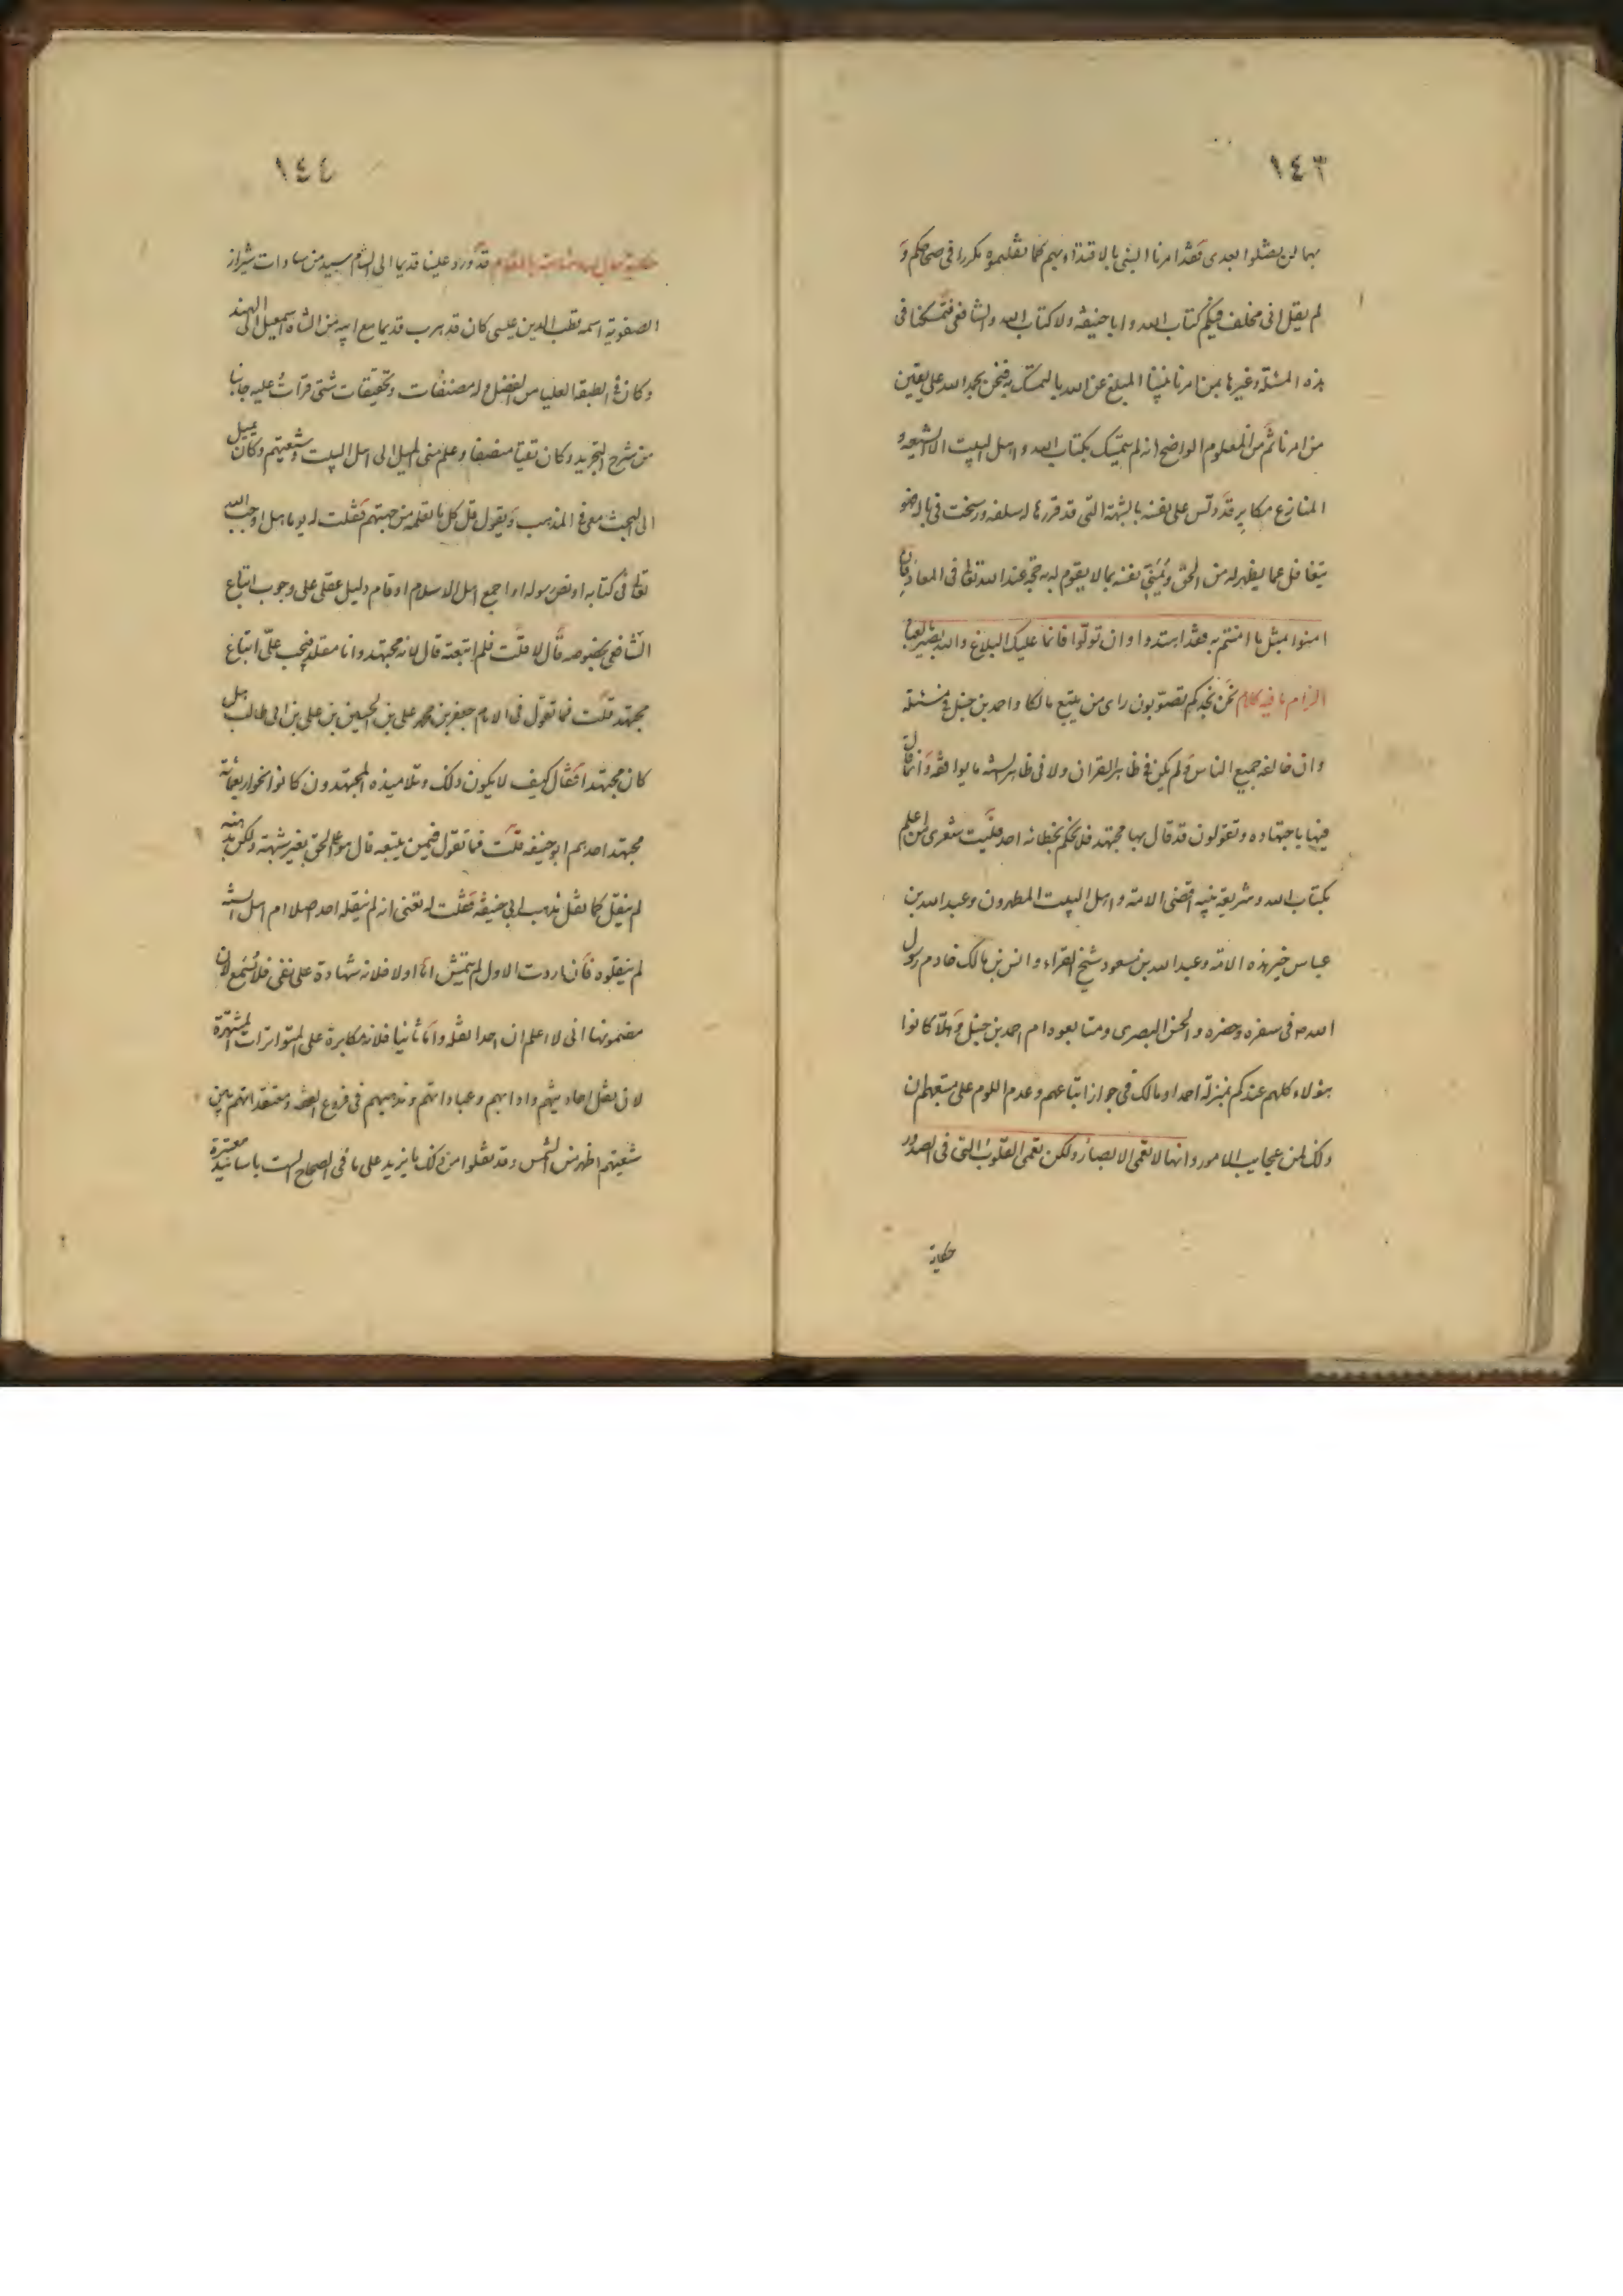 ١٤٣
بهما لن يضلوا بعدى فقد امرنا النبى بالاقتداء بهم كما نقلتموه مكررا فى صحاحكم و
لم يقل انى مخلف فيكم كتاب الله وابا حنيفه ولا كتاب الله والشافعى فتمسكنا فى
هذه المسئلة وغيرها بمن امرنا نبينا المبلغ عن الله بالتمسك به فنحن بحمد الله على يقين
من امرنا ثم من المعلوم الواضح انه لم يتمسك بكتاب الله واهل البيت الا الشيعه و
المنازع مكابر قد دلس على نفسه بالشبهة التى قد قررها له سلفه ورسخت فى باله فهو
يتغافل عما يظهر له من الحق ويمنى نفسه بما لا يقوم له به حجة عند الله تعالى فى المعاد فان
امنوا بمثل ما امنتم به فقد اهتدوا وان تولوا فانما عليك البلاغ والله بصير بالعباد
الزام ما فيه كلام نحن نجدكم تصوبون راى من يتبع مالكا واحمد بن حنبل فى مسئلة
وان خالفه جميع الناس ولم يكن فى ظاهر القران ولا فى ظاهر السنه ما يوافقه وانما قال
فيها باجتهاده وتقولون قد قال بها مجتهد فلا نحكم بخطائه احد فليت شعرى من اعلم
بكتاب الله وشريعة نبيه اقضى الامة واهل البيت المطهرون وعبد الله بن
عباس خير هذه الامة وعبد الله بن مسعود شيخ القراء وانس بن مالك خادم رسول
الله ص فى سفره وحضره والحسن البصرى ومتابعوه ام احمد بن حنبل وهلا كانوا
هؤلاء كلهم عندكم بمنزلة احمد او مالك فى جواز اتباعهم وعدم اللوم على متبعهم ان
ذلك لمن عجايب الامور وانها لا تعمى الابصار ولكن تعمى القلوب التى فى الصدور
حكاية
١٤٤
قد ورد علينا قديما الى الشام سيد من سادات شيراز
الصفوية اسمه قطب الدين عيسى كان قد هرب قديما مع ابيه من الشاه اسمعيل الى الهند
وكان فى الطبقة العليا من الفضل وله مصنفات وتحقيقات شتى قرأت عليه جانبا
من شرح التجريد وكان تقيا منصفا وعلم منى الميل الى اهل البيت وشيعتهم وكان يميل
الى البحث معى فى المذهب ويقول قل كل ما تعلمه من جهتهم فقلت له يوما هل اوجب الله
تعالى فى كتابه او نص رسوله او اجمع اهل الاسلام او قام دليل عقلى على وجوب اتباع
الشافعى بخصوصه قال لا قلت فلم اتبعته قال لانه مجتهد وانا مقلد فيجب على اتباع
مجتهد قلت فما تقول فى الامام جعفر بن محمد بن على بن الحسين بن على بن ابى طالب هل
كان مجتهدا فقال كيف لا يكون ذلك وتلاميذه المجتهدون كانوا نحوا ربعمائة
مجتهد احدهم ابو حنيفه قلت فما تقول فيمن يتبعه قال هو على الحق بغير شبهة ولكن مذهبه
لم ينقل كما نقل مذهب ابى حنيفه فقلت له تعنى انه لم ينقله احد اصلا ام اهل السنة
لم ينقلوه فان اردت الاول لم يتمش اما اولا فلانه شهادة على نفى فلا تسمع لان
مضمونها انى لا اعلم ان احدا نقله واما ثانيا فلانه مكابرة على المتواترات المشتهرة
لان نقل احاديثهم وادابهم وعباداتهم ومذهبهم فى فروع الفقه ومعتقداتهم بين
شيعتهم اظهر من الشمس وقد نقلوا من ذلك ما يزيد على ما فى الصحاح الست باسانيد معتبرة